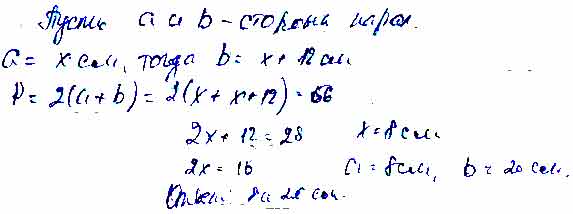 Пусть a и b - стороны парал.
a = x см, тогда b = x + 12 см
P = 2(a+b) = 2(x + x+12) = 56
2x + 12 = 28 x = 8 см
2x = 16 a = 8 см, b = 20 см.
Ответ: 8 и 20 см.